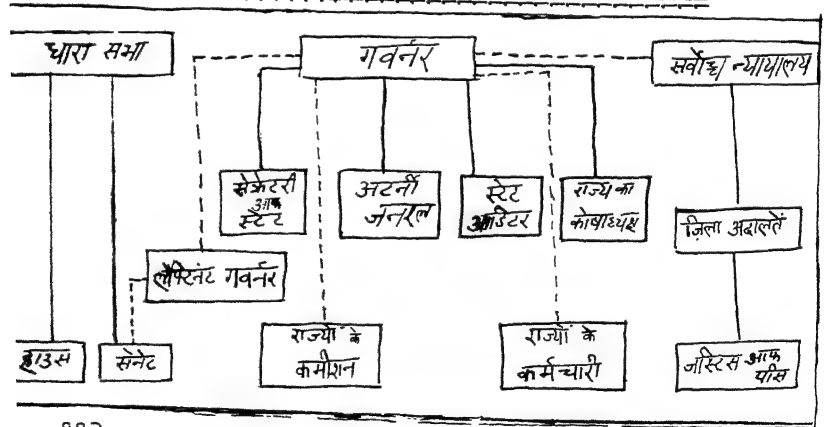 धारा सभा
गवर्नर
सर्वोच्च न्यायालय
सेक्रेटरी
आफ
स्टेट
अटर्नी
जनरल
स्टेट
आडिटर
राज्य का
कोषाध्यक्ष
ज़िला अदालतें
लैफ्टिनेंट गवर्नर
हाउस
सेनेट
राज्यों के
कमीशन
राज्यों के
कर्मचारी
जस्टिस आफ
पीस